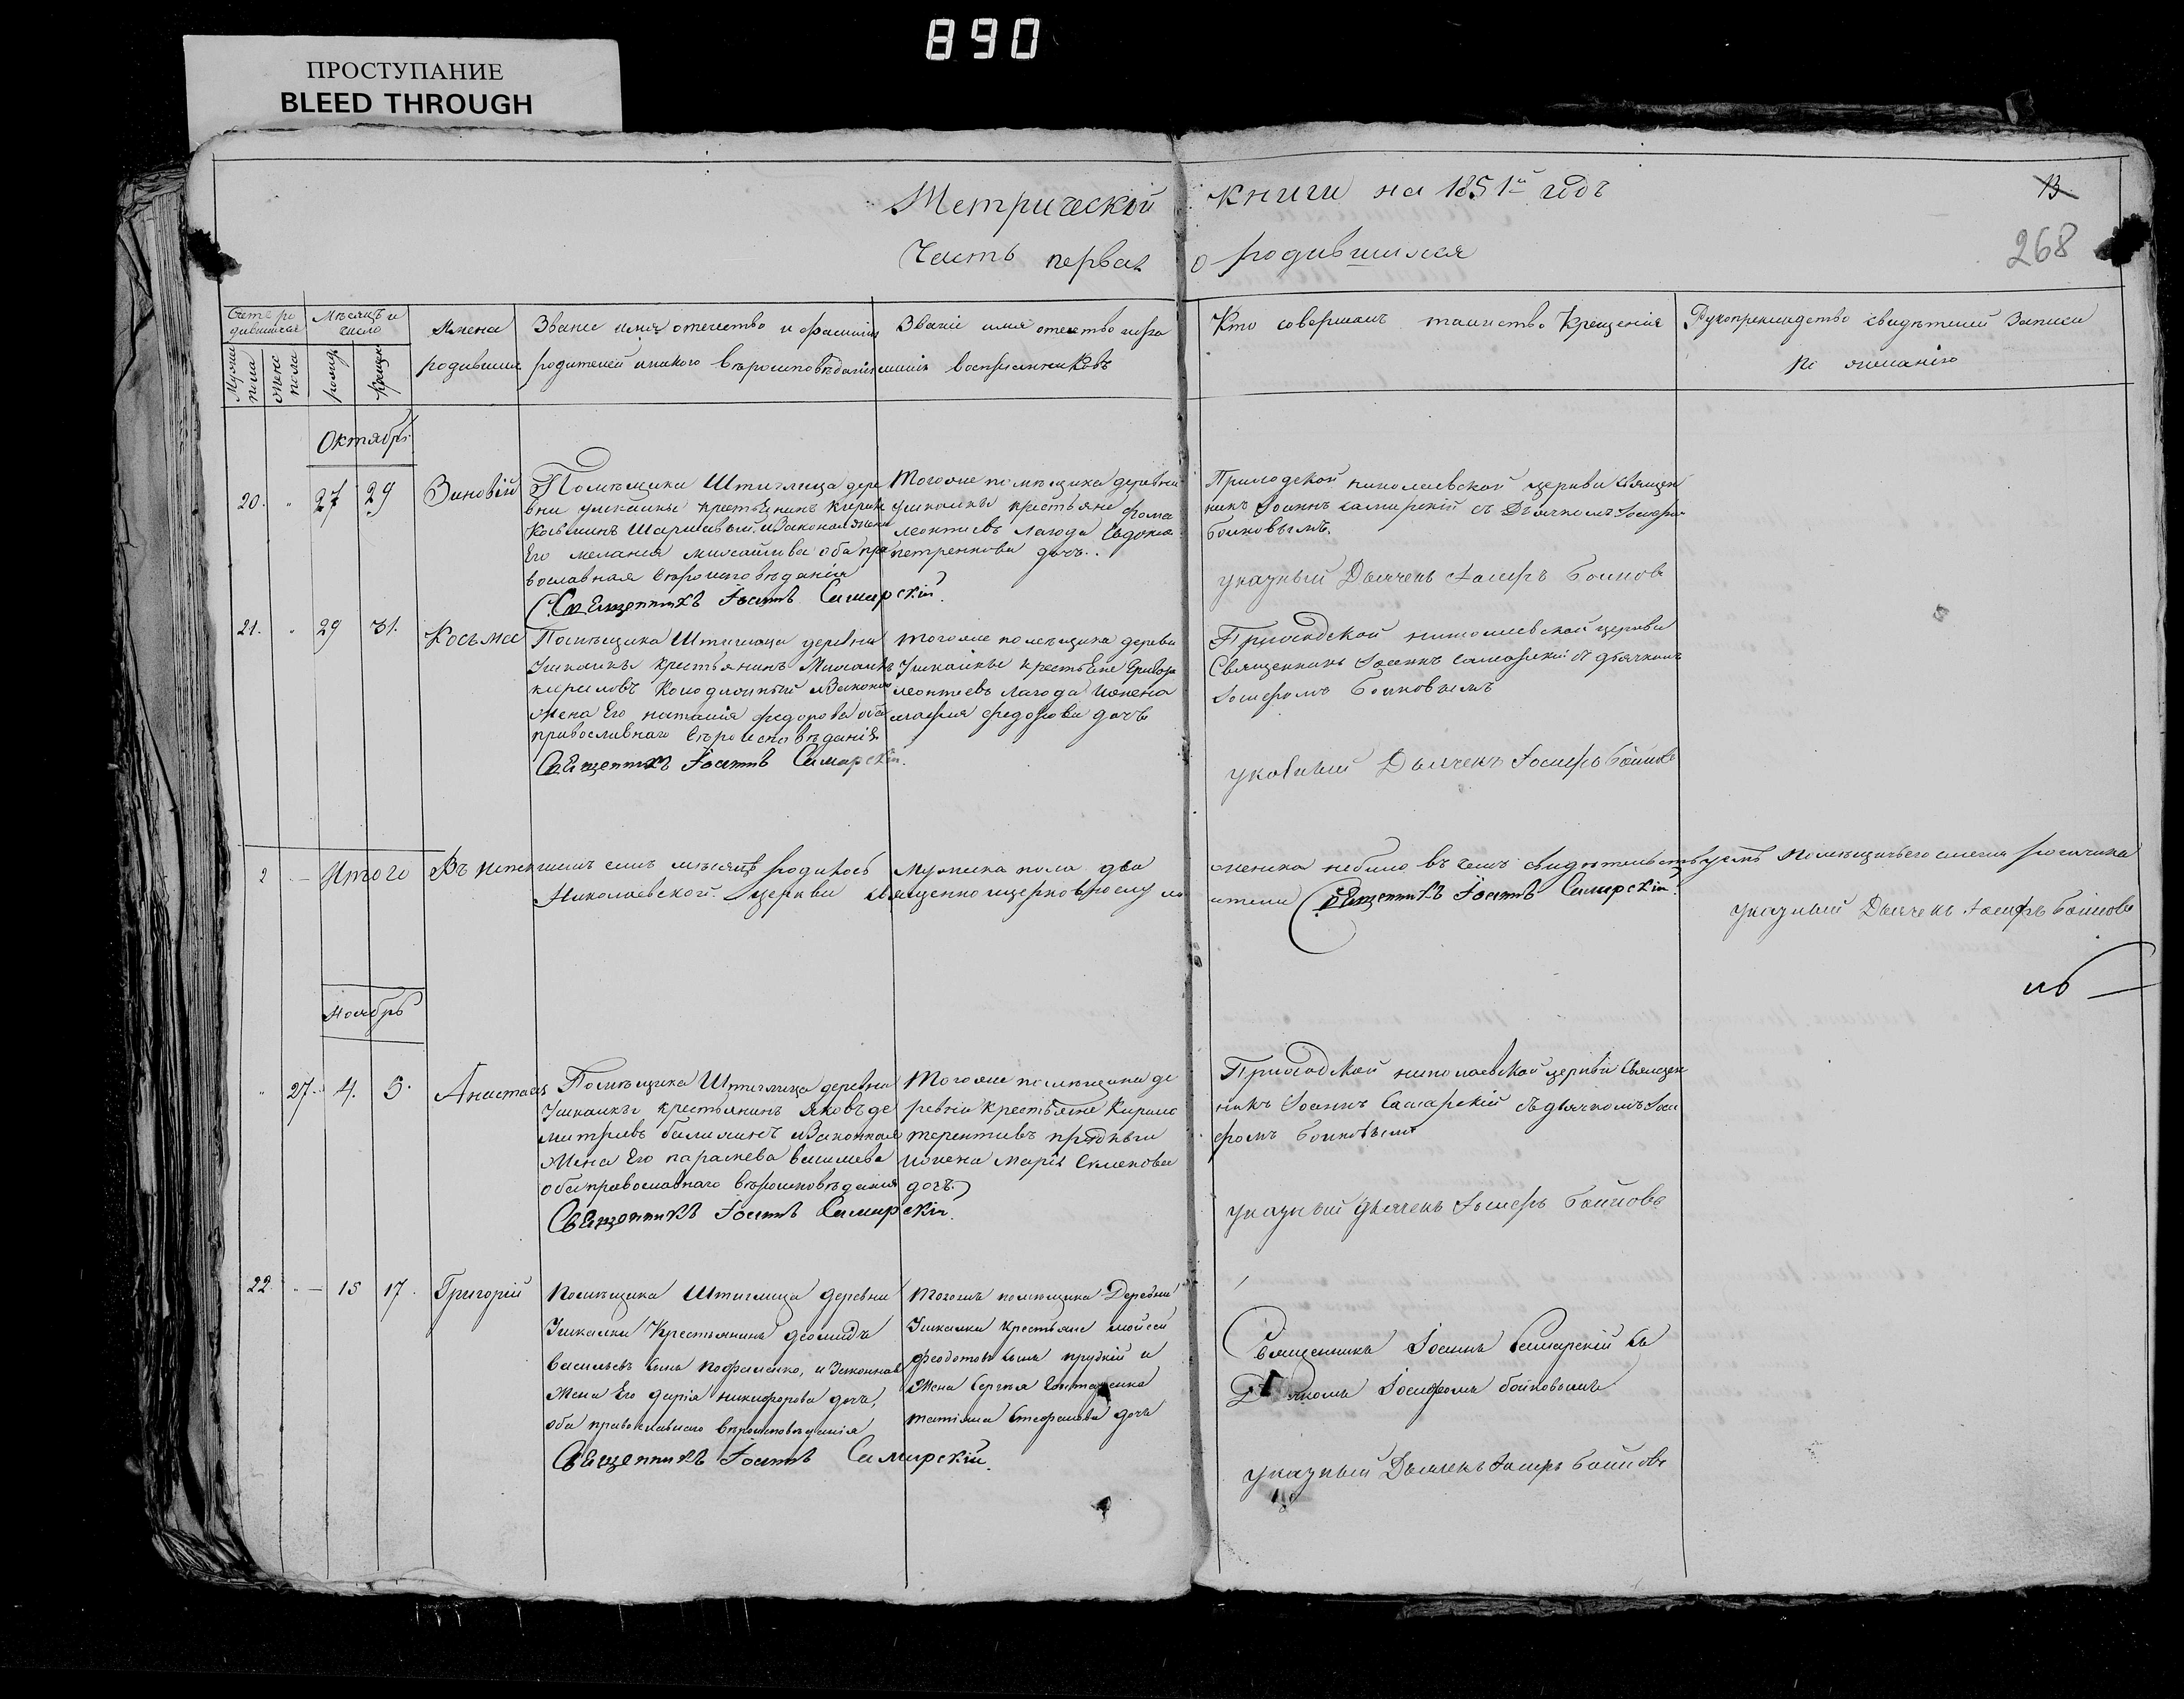 890
ПРОСТУПАНИЕ
BLEED THROUGH
Метрической книги на 1851й годъ
13
268
Часть первая о родившихся
Счетъ ро
дившихся
Муже
пола
жене
пола
Мѣсяцъ и
число
рожд
Крещен
Имена
родивших
Званіе имя отечество и фамилія
родителей и какого вѣроисповѣданія
Званіе имя отечество и фа
милія воспріемниковъ
Кто совершалъ таинство Крещенія
Рукоприкладство свидѣтелей Записи
по желанію
Октябрь
20. " 27 29 Зиновій
Помѣщика Штиглица дере
вни ушкалки крестьянинъ
Косьминъ и Законная жена
Его мелания оба пра
вославная вѣроисповѣданія
Священникъ Іоаннъ Самарскій
Тогоже помѣщика деревни
ушкалки крестьяне фома
леонтіевъ Лагода Евдокия
петренкова дочь.
николаевской церкви священ
никъ Іоаннъ самарскій съ Дьячкомъ Іосифо
Бойковымъ.
указный Дьячекъ Іосифъ Бойковъ
21. " 29 31. Косьма
Помѣщика Штиглица деревни
Ушкалки крестьянинъ Михаилъ
кириловъ и Законная
жена Его наталія федорова оба
православнаго вѣроисповѣданія
Священникъ Іоаннъ Самарскій.
тогоже помѣщика деревни
Ушкалки крестьяне Григорій
леонтіевъ Лагода и жена
марфа федорова дочь
николаевской церкви
Священникъ Іоаннъ самарскій съ дьячкомъ
Іосифомъ Бойковымъ
указный Дьячекъ Іосифъ Бойковъ
2 — Итого Въ истекшемъ семъ мѣсяцѣ родилось мужеска пола два женска небыло въ чемъ свидѣтельствуемъ помѣщичьего имения рогачика
Николаевской церкви священноцерковнослужители Священникъ Іоаннъ Самарскій.
указный Дьячекъ Іосифъ Бойковъ
Ноябрь
" 27. 4. 5. Анастасія
Помѣщика Штиглица деревни
Ушкалки крестьянинъ Яковъ де
митріевъ и Законная
Жена Его параскева васильева
оба православнаго вѣроисповѣданія
Священникъ Іоаннъ Самарскій.
Тогоже помѣщика де
ревни крестьяне Кирило
терентіевъ
и жена Марія Семенова
дочь.
николаевской церкви Священ
никъ Іоаннъ Самарскій съ дьячкомъ Іоси
фомъ Бойковымъ
указный дьячекъ Іосифъ Бойковъ
22. " — 15 17. Григорій
Помѣщика Штиглица деревни
Ушкалки Крестьянинъ деомидъ
васильевъ сынъ и Законная
Жена Его дарія никифорова дочь,
оба православнаго вѣроисповѣданія
Священникъ Іоаннъ Самарскій.
Тогожъ помѣщика Деревни
Ушкалки крестьяне мойсей
феодотовъ сынъ прудкій и
Жена Сергѣя
татіяна Стефанова дочь
Священникъ Іоаннъ Самарскій съ
Дьячкомъ Іосифомъ бойковымъ
указный Дьячекъ Іосифъ Бойковъ